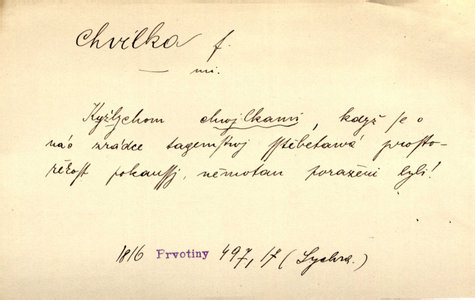 Chvilka f.
— mi.
Kýžbychom chwjlkami, když se o
náš zrádce tagemstwj sstěbetawá prosto-
řekost pokaussj, němotau poraženi byli!
1816 Prvotiny 497, 17 (Sychra.)